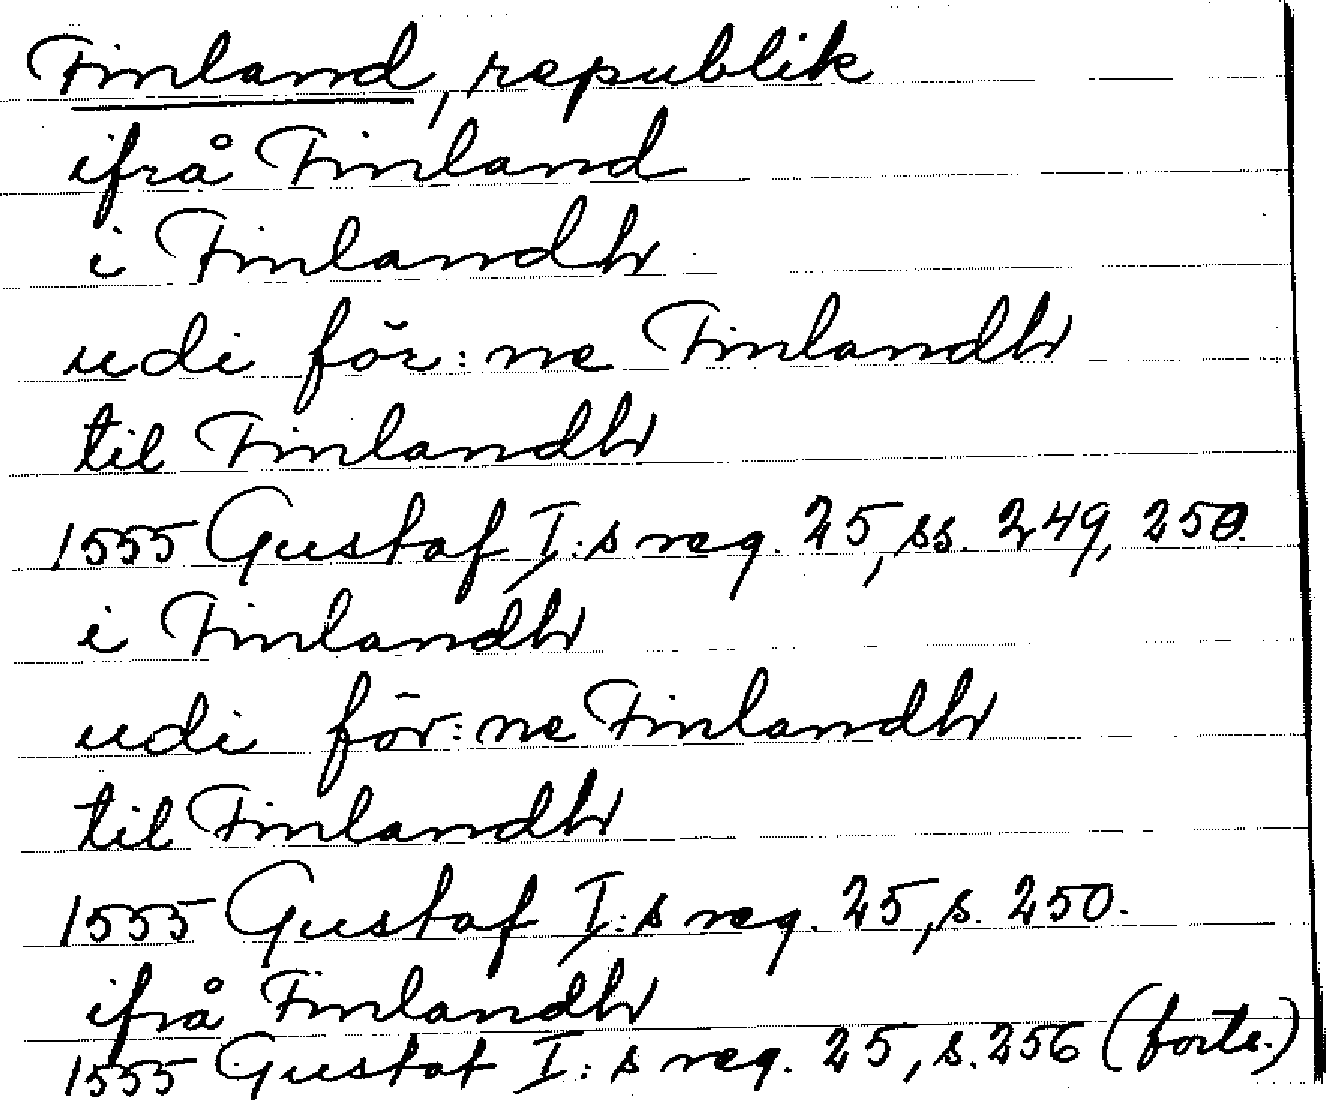 Finland, republik
ifrå Finland
i Finlandh
udi för:ne Finlandh
til Finlandh
1555 Gustaf I:s reg. 25, ss. 249, 250.
i Finlandh
udi för:ne Finlandh
til Finlandh
1555 Gustaf I:s reg. 25, s. 250.
ifrå Finlandh
1555 Gustaf I:s reg. 25, s. 256 (forts.)